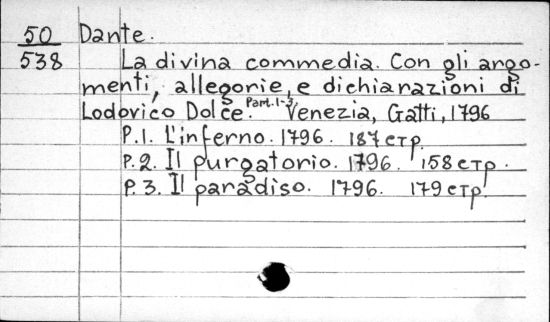 50 Dante.
538 La divina commedia. Con gli argo-
menti, allegorie, e dichiarazioni di
Lodovico Dolce. Part. 1-3 Venezia, Gatti, 1796
P.1. L'inferno. 1796. 187 стр.
P.2. Il purgatorio. 1796. 158 стр.
P.3. Il paradiso. 1796. 179 стр.